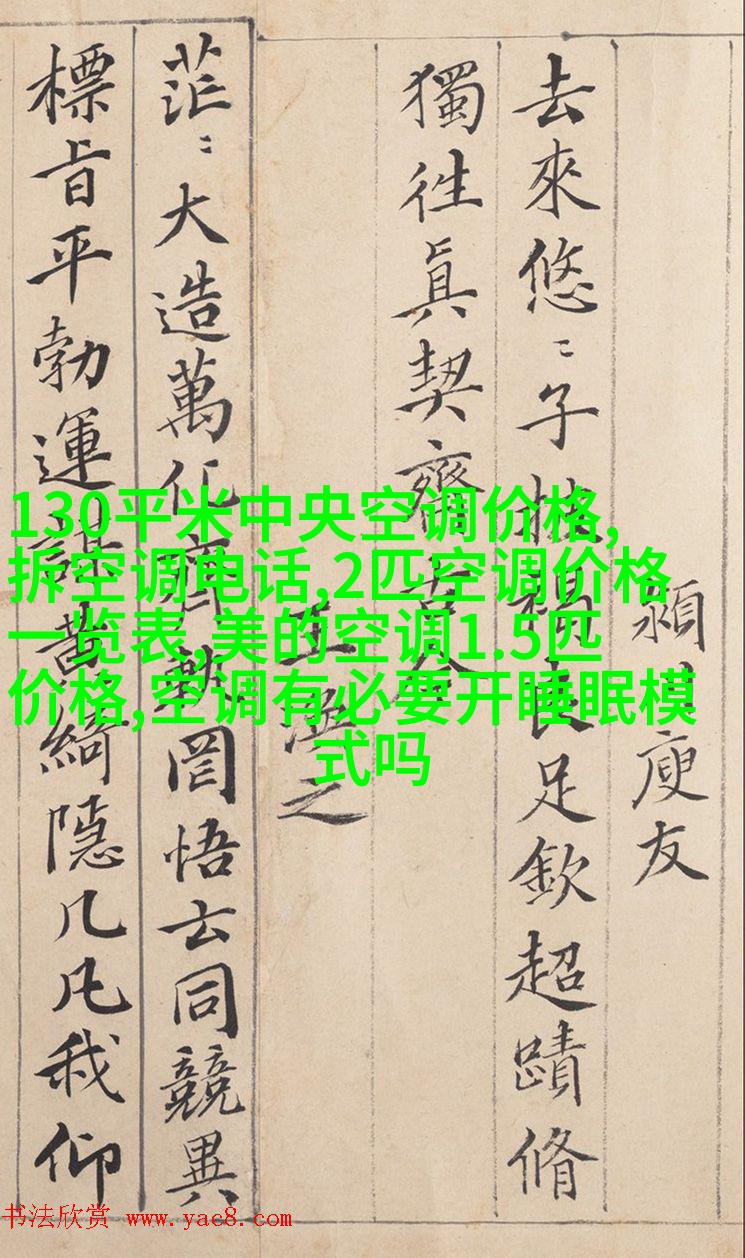 130平米中央空调价格,
拆空调电话,2匹空调价格
一览表,美的空调1.5匹
价格,空调有必要开睡眠模
式吗
潁川庾友
去來悠〻子披褐良足欽超蹟脩
獨徃真契齊古今
王渙之
茫〻大造萬化齊軌罔悟玄同競異
標旨平勃運謀黃綺隱几凡我仰
书法欣赏 www.yac8.com